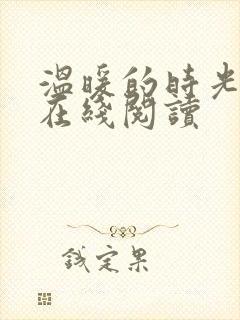 温暖的時光
在綫閱讀
錢定果